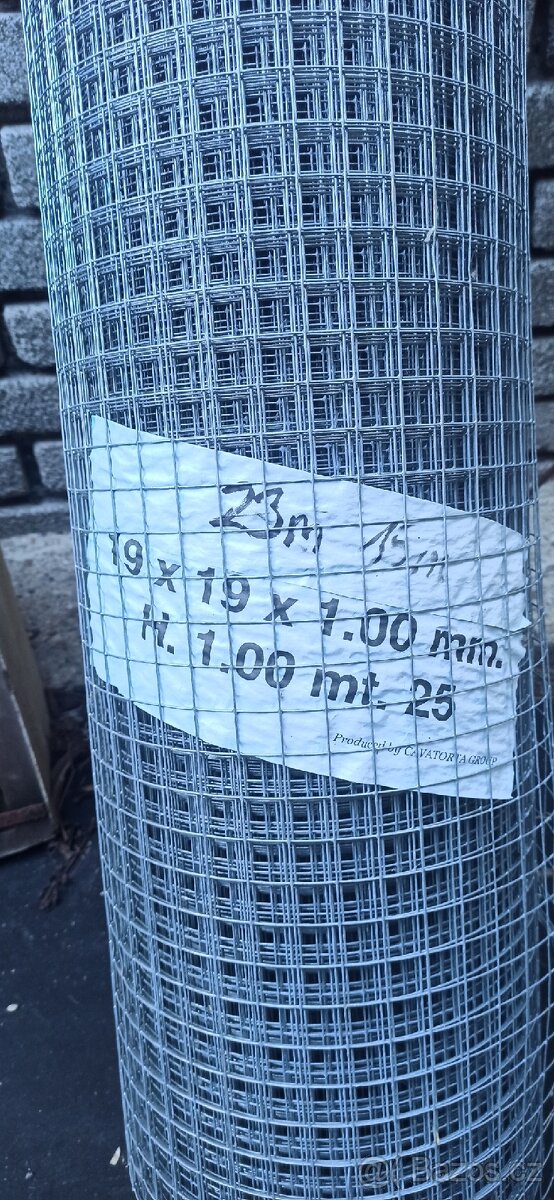 23m 15m
19 x 19 x 1.00 mm.
H. 1.00 mt. 25
Produced by CAVATORTA GROUP
Bazos.cz